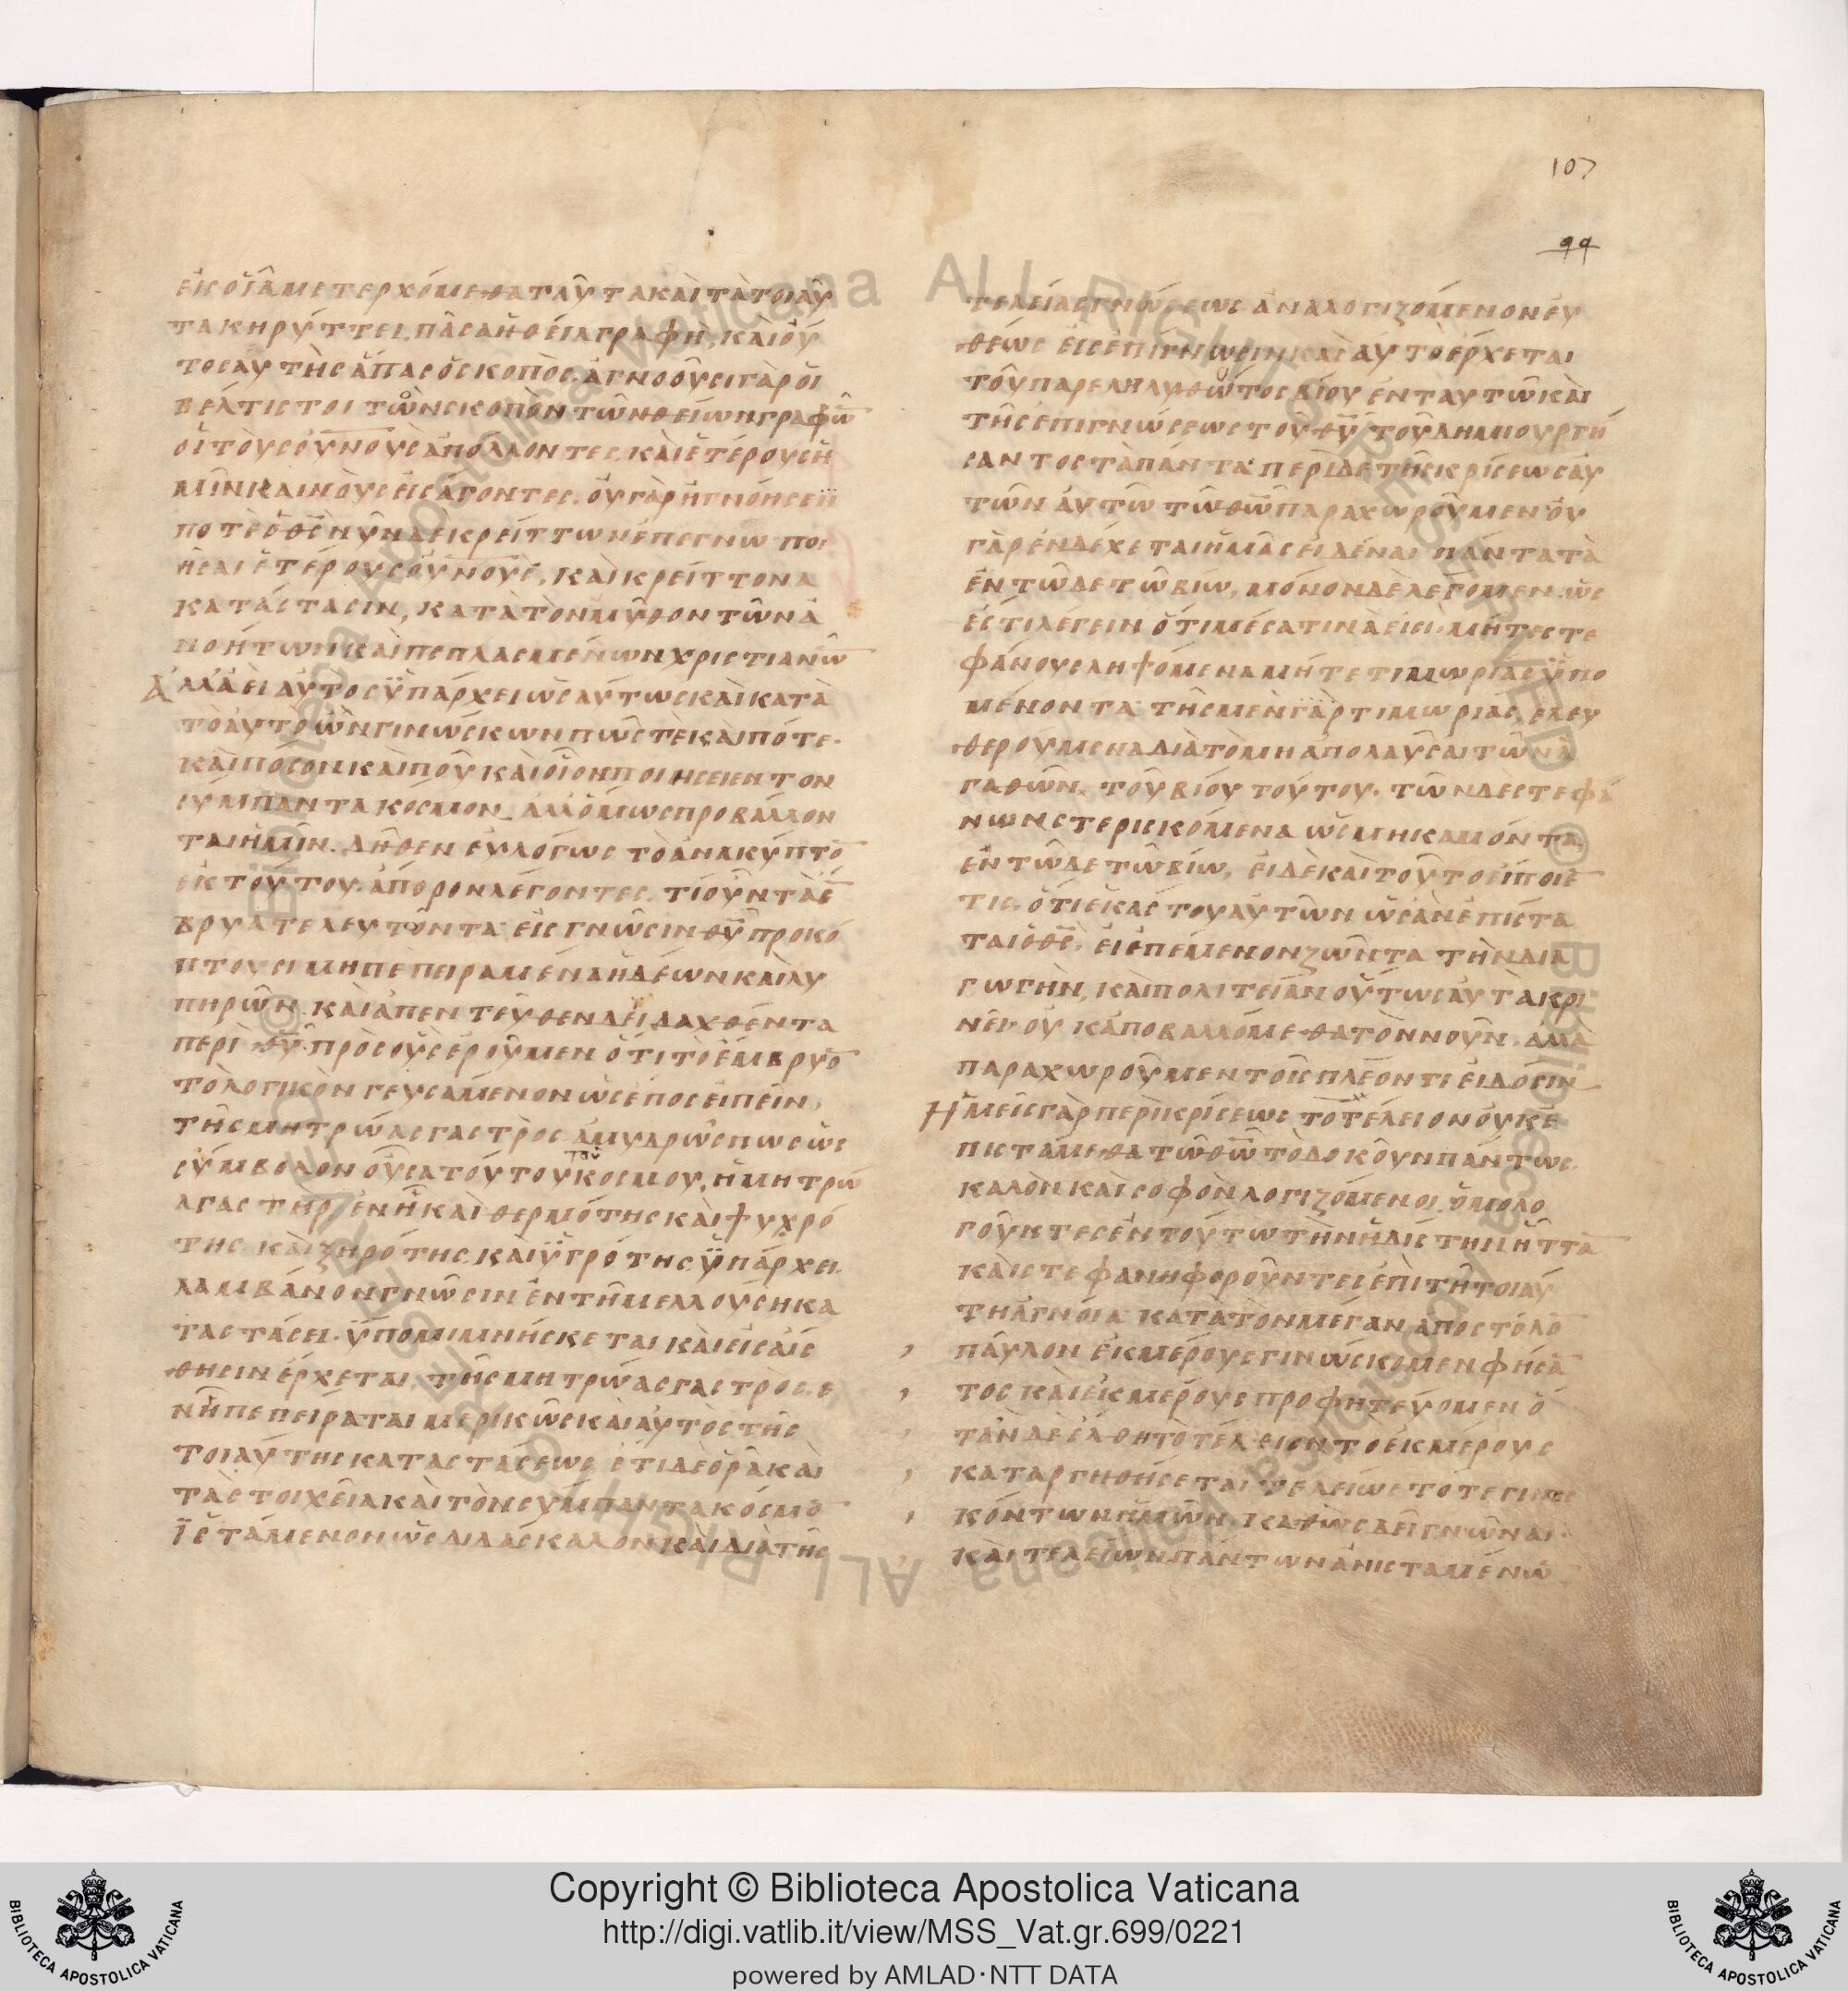 107
99
εἰς οἷα μετερχόμεθα ταῦτα καὶ τὰ τοιαῦ
τα κηρύττει πᾶσα ἡ θεία γραφή, καὶ οὗ
τος αὐτῆς ἅπας ὁ σκοπός. ἀγνοοῦσι γὰρ οἱ
βέλτιστοι τὸν σκοπὸν τῶν θείων γραφῶ̅
οἱ τοὺς ο̅υ̅ν̅ο̅υ̅ς ἀπολλοντες, καὶ ἑτέρους ἡ
μῖν καινοὺς εἰσάγοντες. οὐ γὰρ ἠγνόησέν
ποτε ὁ θ̅ς̅ νῦν δὲ κρεῖττων ἐπέγνω ποι
ῆσαι ἑτέρους ο̅υ̅ν̅ο̅υ̅ς, καὶ κρείττονα
κατάστασιν, κατὰ τὸν μῦθον τῶν ἀ
νοήτων καὶ πεπλασμένων χριστιανῶ̅
Ἀλλ' ἀεὶ αὐτὸς ὑπάρχει ὡσαύτως καὶ κατὰ
τὸ αὐτὸ ὢν γινώσκων πῶς τε καὶ πότε.
καὶ πόσον καὶ ποῦ καὶ οἷον ποιήσειεν τὸν
σύμπαντα κόσμον. ἀλλ' ὅμως προβάλλον
ται ἡμῖν. δῆθεν εὐλόγως τὸ ἀνακύπτο̅
ἐκ τούτου. ἄπορον λέγοντες. τί οὖν τὰ ἔ̅
βρυα τελευτῶντα εἰς γνῶσιν θ̅υ̅ προκό
πτουσι μὴ πεπειραμένα ἡδέων καὶ λυ
πηρῶν. καὶ ἀπεντεῦθεν δὲ διδαχθέντα
περὶ θ̅υ̅. πρὸς οὓς ἐροῦμεν ὅτι τὸ ἔμβρυο̅
τὸ λογικὸν γευσάμενον ὡς ἔπος εἰπεῖν,
τῆς μητρῴας γαστρὸς ἀμυδρῶς πως ὡς
σύμβολον οὖσα τούτου τοῦ κόσμου, ἡ μητρῴ
α γαστήρ, ἐν ᾗ καὶ θερμότης καὶ ψυχρό
της καὶ ξηρότης καὶ ὑγρότης ὑπάρχει.
λαμβάνον γνῶσιν ἐν τῇ μελλούσῃ κα
ταστάσει. ὑπομιμνήσκεται καὶ εἰς αἴσ
θησιν ἔρχεται, τῆς μητρῴας γαστρὸς. ἐ
ν ᾗ πεπείραται μερικῶς καὶ αὐτὸς τῆς
τοιαύτης καταστάσεως ἔτι δὲ ὁρᾷ καὶ
τὰ στοιχεῖα καὶ τὸν σύμπαντα κόσμο̅
ἱστάμενον ὡς διδάσκαλον καὶ διὰ τῆς
τελείας γνώσεως ἀναλογιζόμενον εὐ
θέως εἰς ἐπίγνωσιν καὶ αὐτὸ ἔρχεται
τοῦ παρεληλυθότος βίου ἐνταυτῶ καὶ
τῆς ἐπιγνώσεως τοῦ θ̅υ̅ τοῦ δημιουργή
σαντος τὰ πάντα περὶ δὲ τῆς κρίσεως αὐ
τῶν αὐτῷ τῷ θ̅ω̅ παραχωροῦμεν· οὐ
γὰρ ἐνδέχεται ἡμᾶς εἰδέναι πάντα τὰ
ἐν τῷδε τῷ βίῳ, μόνον δὲ λέγομεν ὡς
ἔστι λέγειν ὅτι μέσα τινά εἰσι· μήτε στε
φάνους ληψόμενα μήτε τιμωρίας ὑπο
μένοντα· τῆς μὲν γὰρ τιμωρίας, ἐλευ
θερούμενα διὰ τὸ μὴ ἀπολαῦσαι τῶν ἀ
γαθῶν. τοῦ βίου τούτου. τῶν δὲ στεφά
νων στερισκόμενα ὡς μὴ καμόντα
ἐν τῷδε τῷ βίῳ, εἰ δὲ καὶ τοῦτο εἴποιέ̅
τις. ὅτι ἑκάστου αὐτῶν ὡς ἂν ἐπίστα
ται ὁ θ̅ς̅, εἰ ἐπέμενον ζῶντα τὴν δια
γωγὴν, καὶ πολιτείαν οὕτως αὐτὰ κρί
νει· οὐκ ἀποβαλλόμεθα τὸν νοῦν. ἀλλὰ
παραχωροῦμεν τοῖς πλέον τι εἰδόσιν
Ἡμεῖς γὰρ περὶ κρίσεως τὸ τέλειον οὐκ ἐ
πιστάμεθα τῷ θ̅ω̅ τὸ δοκοῦν πάντως
καλὸν καὶ σοφὸν λογιζόμενοι. ὁμολο
γοῦντες ἐν τούτῳ τὴν ἡδίστην ἧττα̅
καὶ στεφανηφοροῦντες ἐπὶ τῇ τοιαύ
τῃ ἀγνοίᾳ κατὰ τὸν μέγαν ἀπόστολο̅
παῦλον ἐκ μέρους γινώσκομεν φήσα̅
τος καὶ ἐκ μέρους προφητεύομεν ὅ
ταν δὲ ἔλθῃ τὸ τέλειον τὸ ἐκ μέρους
καταργηθήσεται τελείως τότε γινωσ
κόντων ἡμῶν. καθὼς δεῖ γνῶναι.
καὶ τελείων πάντων ἀνισταμένω̅
Copyright © Biblioteca Apostolica Vaticana
http://digi.vatlib.it/view/MSS_Vat.gr.699/0221
powered by AMLAD·NTT DATA
BIBLIOTECA APOSTOLICA VATICANA
BIBLIOTECA APOSTOLICA VATICANA